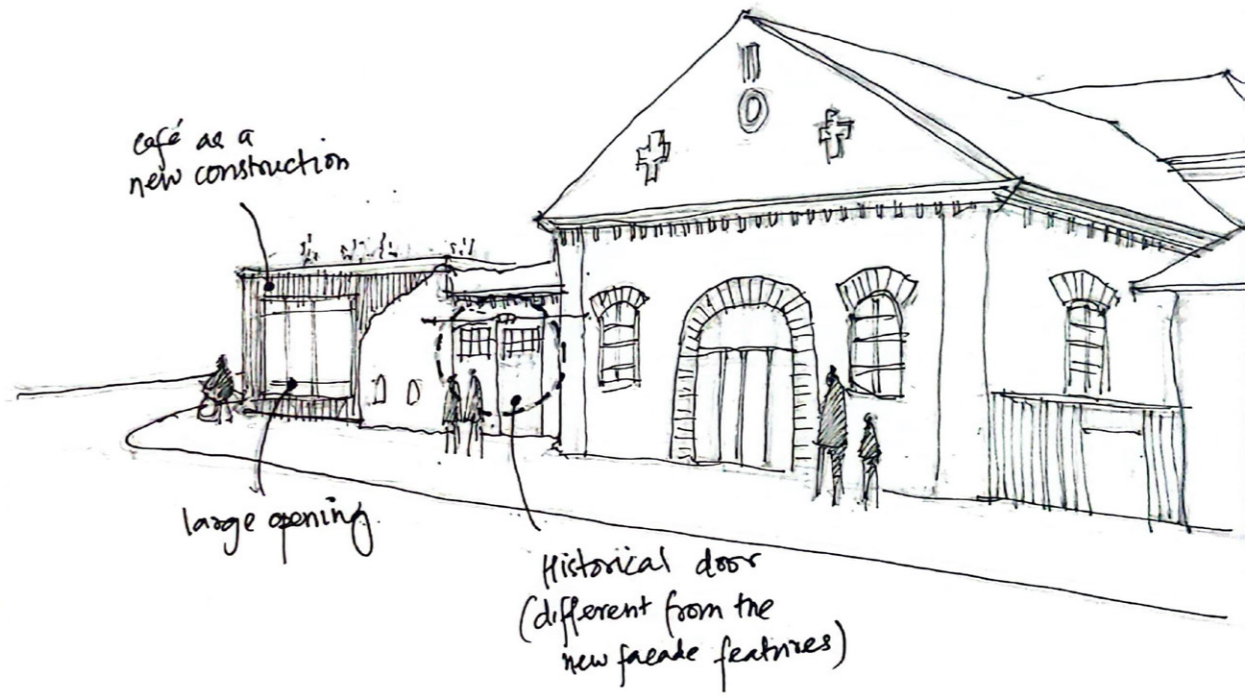 café as a
new construction
large opening.
Historical door
(different from the
new facade features)